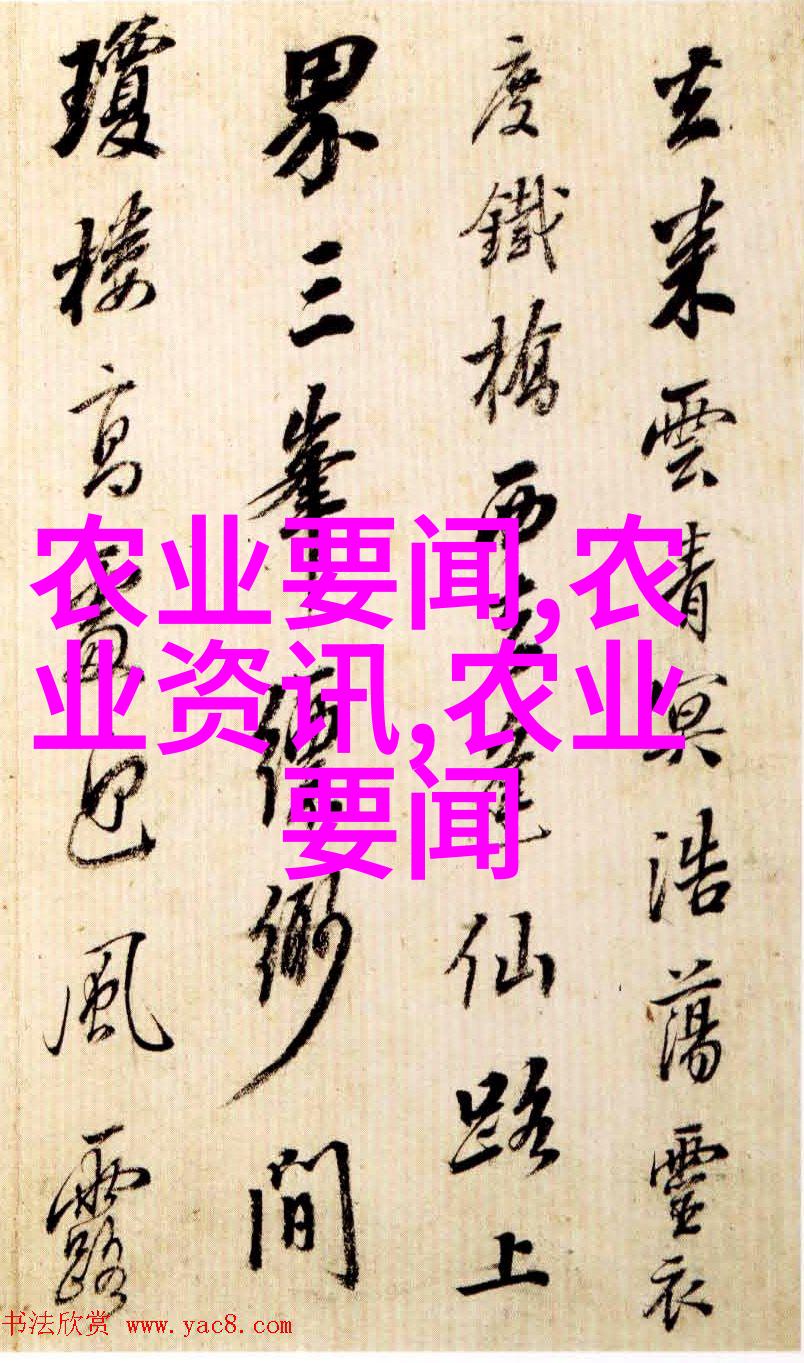 雲青冥浩蕩靈衣
度鐵橋西仙路上
界三峯縹緲間
瓊樓高風露
农业要闻,农
业资讯,农业
要闻
书法欣赏 www.yac8.com